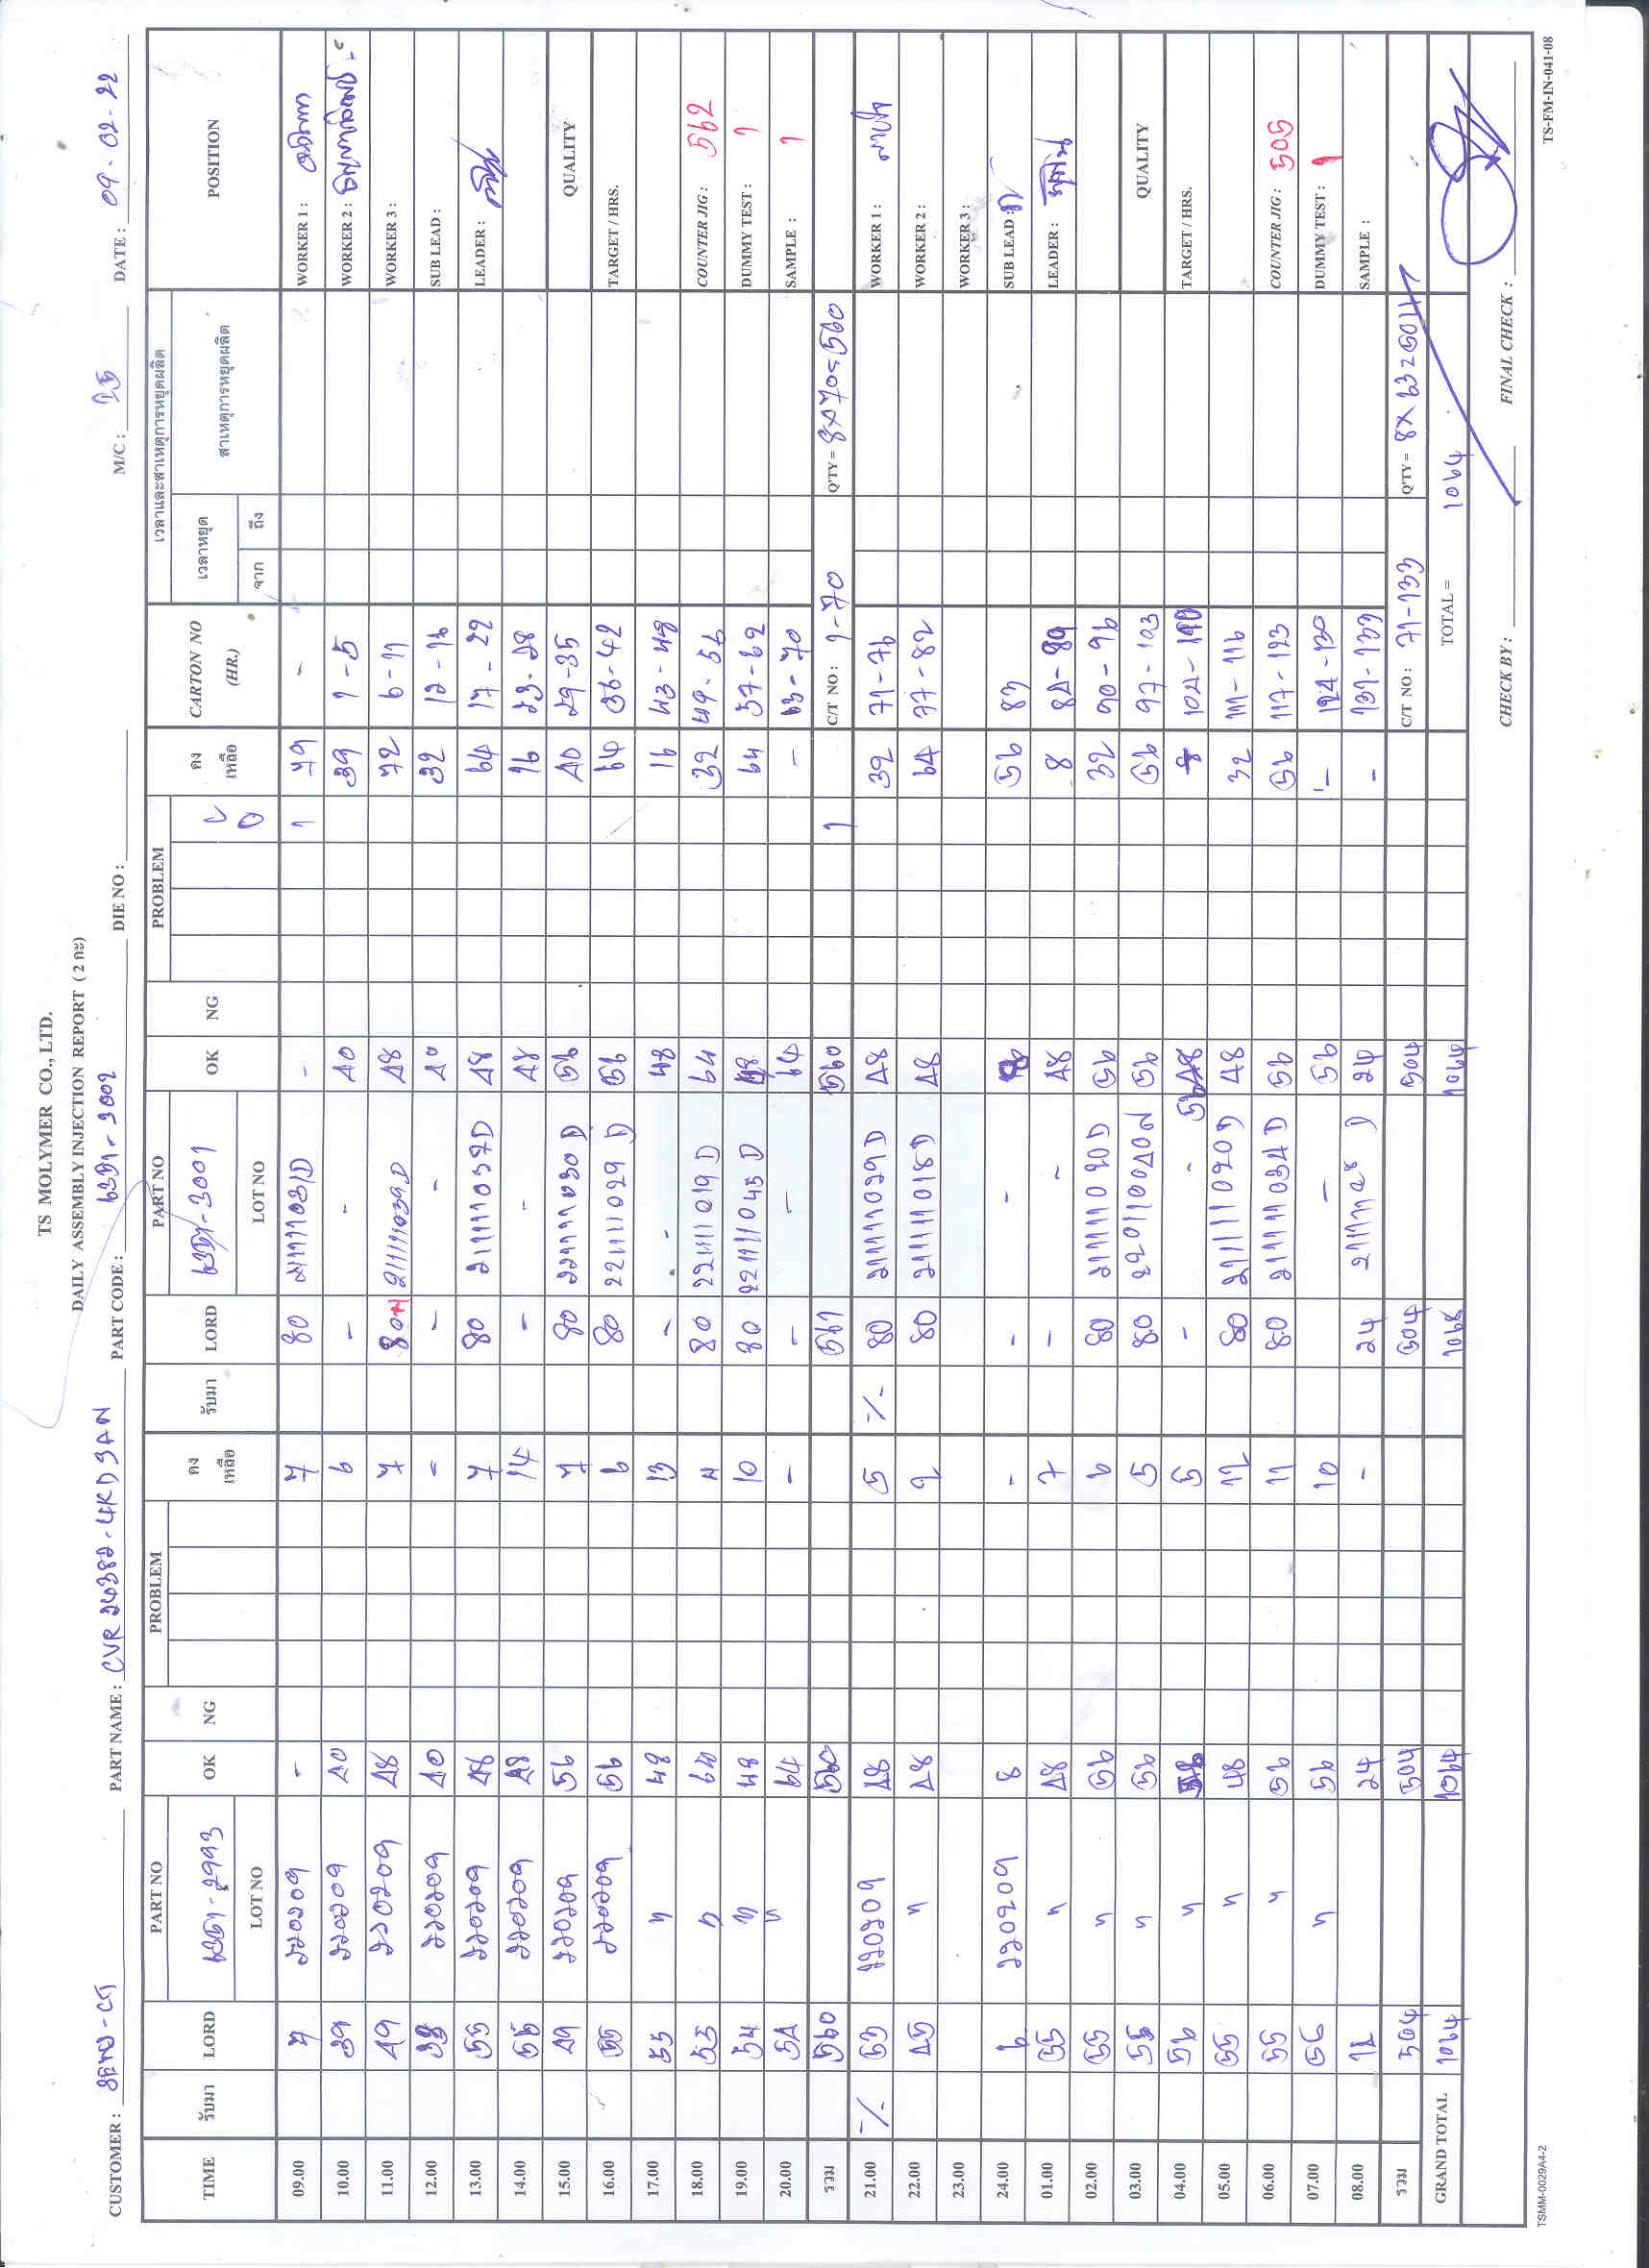 TS MOLYMER CO., LTD.
DAILY ASSEMBLY INJECTION REPORT ( 2 กะ)
CUSTOMER : PART NAME : CVR 26382-4KD3AN PART CODE : 6351-3002 DIE NO : M/C : 25 DATE : 09-02-22
TIME รับมา LORD PART NO OK NG PROBLEM คงเหลือ รับมา LORD PART NO OK NG PROBLEM คงเหลือ CARTON NO (HR.) เวลาและสาเหตุการหยุดผลิต POSITION
6351-2993 6351-3001 เวลาหยุด สาเหตุการหยุดผลิต
LOT NO LOT NO จาก ถึง
09.00 7 220209 - 7 80 21111031D - 1 79 - WORKER 1 :
10.00 39 220209 40 6 - - 40 39 1-5 WORKER 2 :
11.00 49 220209 48 7 80 211111039D 48 72 6-11 WORKER 3 :
12.00 33 220209 40 - - - 40 32 12-16 SUB LEAD :
13.00 55 220209 48 7 80 211111037D 48 64 17-22 LEADER :
14.00 55 220209 48 14 - - 48 16 23-28
15.00 49 220209 56 7 80 221111030D 56 40 29-35 QUALITY
16.00 55 220209 56 6 80 221111029D 56 64 36-42 TARGET / HRS.
17.00 55 " 48 13 - - 48 16 43-48
18.00 55 " 64 4 80 221111019D 64 32 49-56 COUNTER JIG : 562
19.00 54 " 48 10 80 221111045D 48 64 57-62 DUMMY TEST : 1
20.00 54 " 64 - - - 64 - 63-70 SAMPLE : 1
รวม 560 560 561 560 1 C/T NO : 1-70 Q'TY = 8X70=560
21.00 53 220209 48 5 80 211111029D 48 32 71-76 WORKER 1 :
22.00 45 " 48 2 80 211111018D 48 64 77-82 WORKER 2 :
23.00 WORKER 3 :
24.00 6 220209 8 - - - 8 56 83 SUB LEAD :
01.00 55 " 48 7 - - 48 8 84-89 LEADER :
02.00 55 " 56 6 80 211111020D 56 32 90-96
03.00 55 " 56 5 80 220110040N 56 56 97-103 QUALITY
04.00 56 " 56 5 - - 56 8 104-110 TARGET / HRS.
05.00 55 " 48 12 80 211111020D 48 32 111-116
06.00 55 " 56 11 80 211111034D 56 56 117-123 COUNTER JIG : 505
07.00 56 " 56 10 - 56 - 124-130 DUMMY TEST : 1
08.00 24 - 24 D 24 - 131-133 SAMPLE :
รวม 504 504 504 504 C/T NO : 71-133 Q'TY = 8X63=504
GRAND TOTAL 1064 1064 1064 TOTAL = 1064
CHECK BY : FINAL CHECK :
TSMM-0029A4-2 TS-FM-IN-041-08